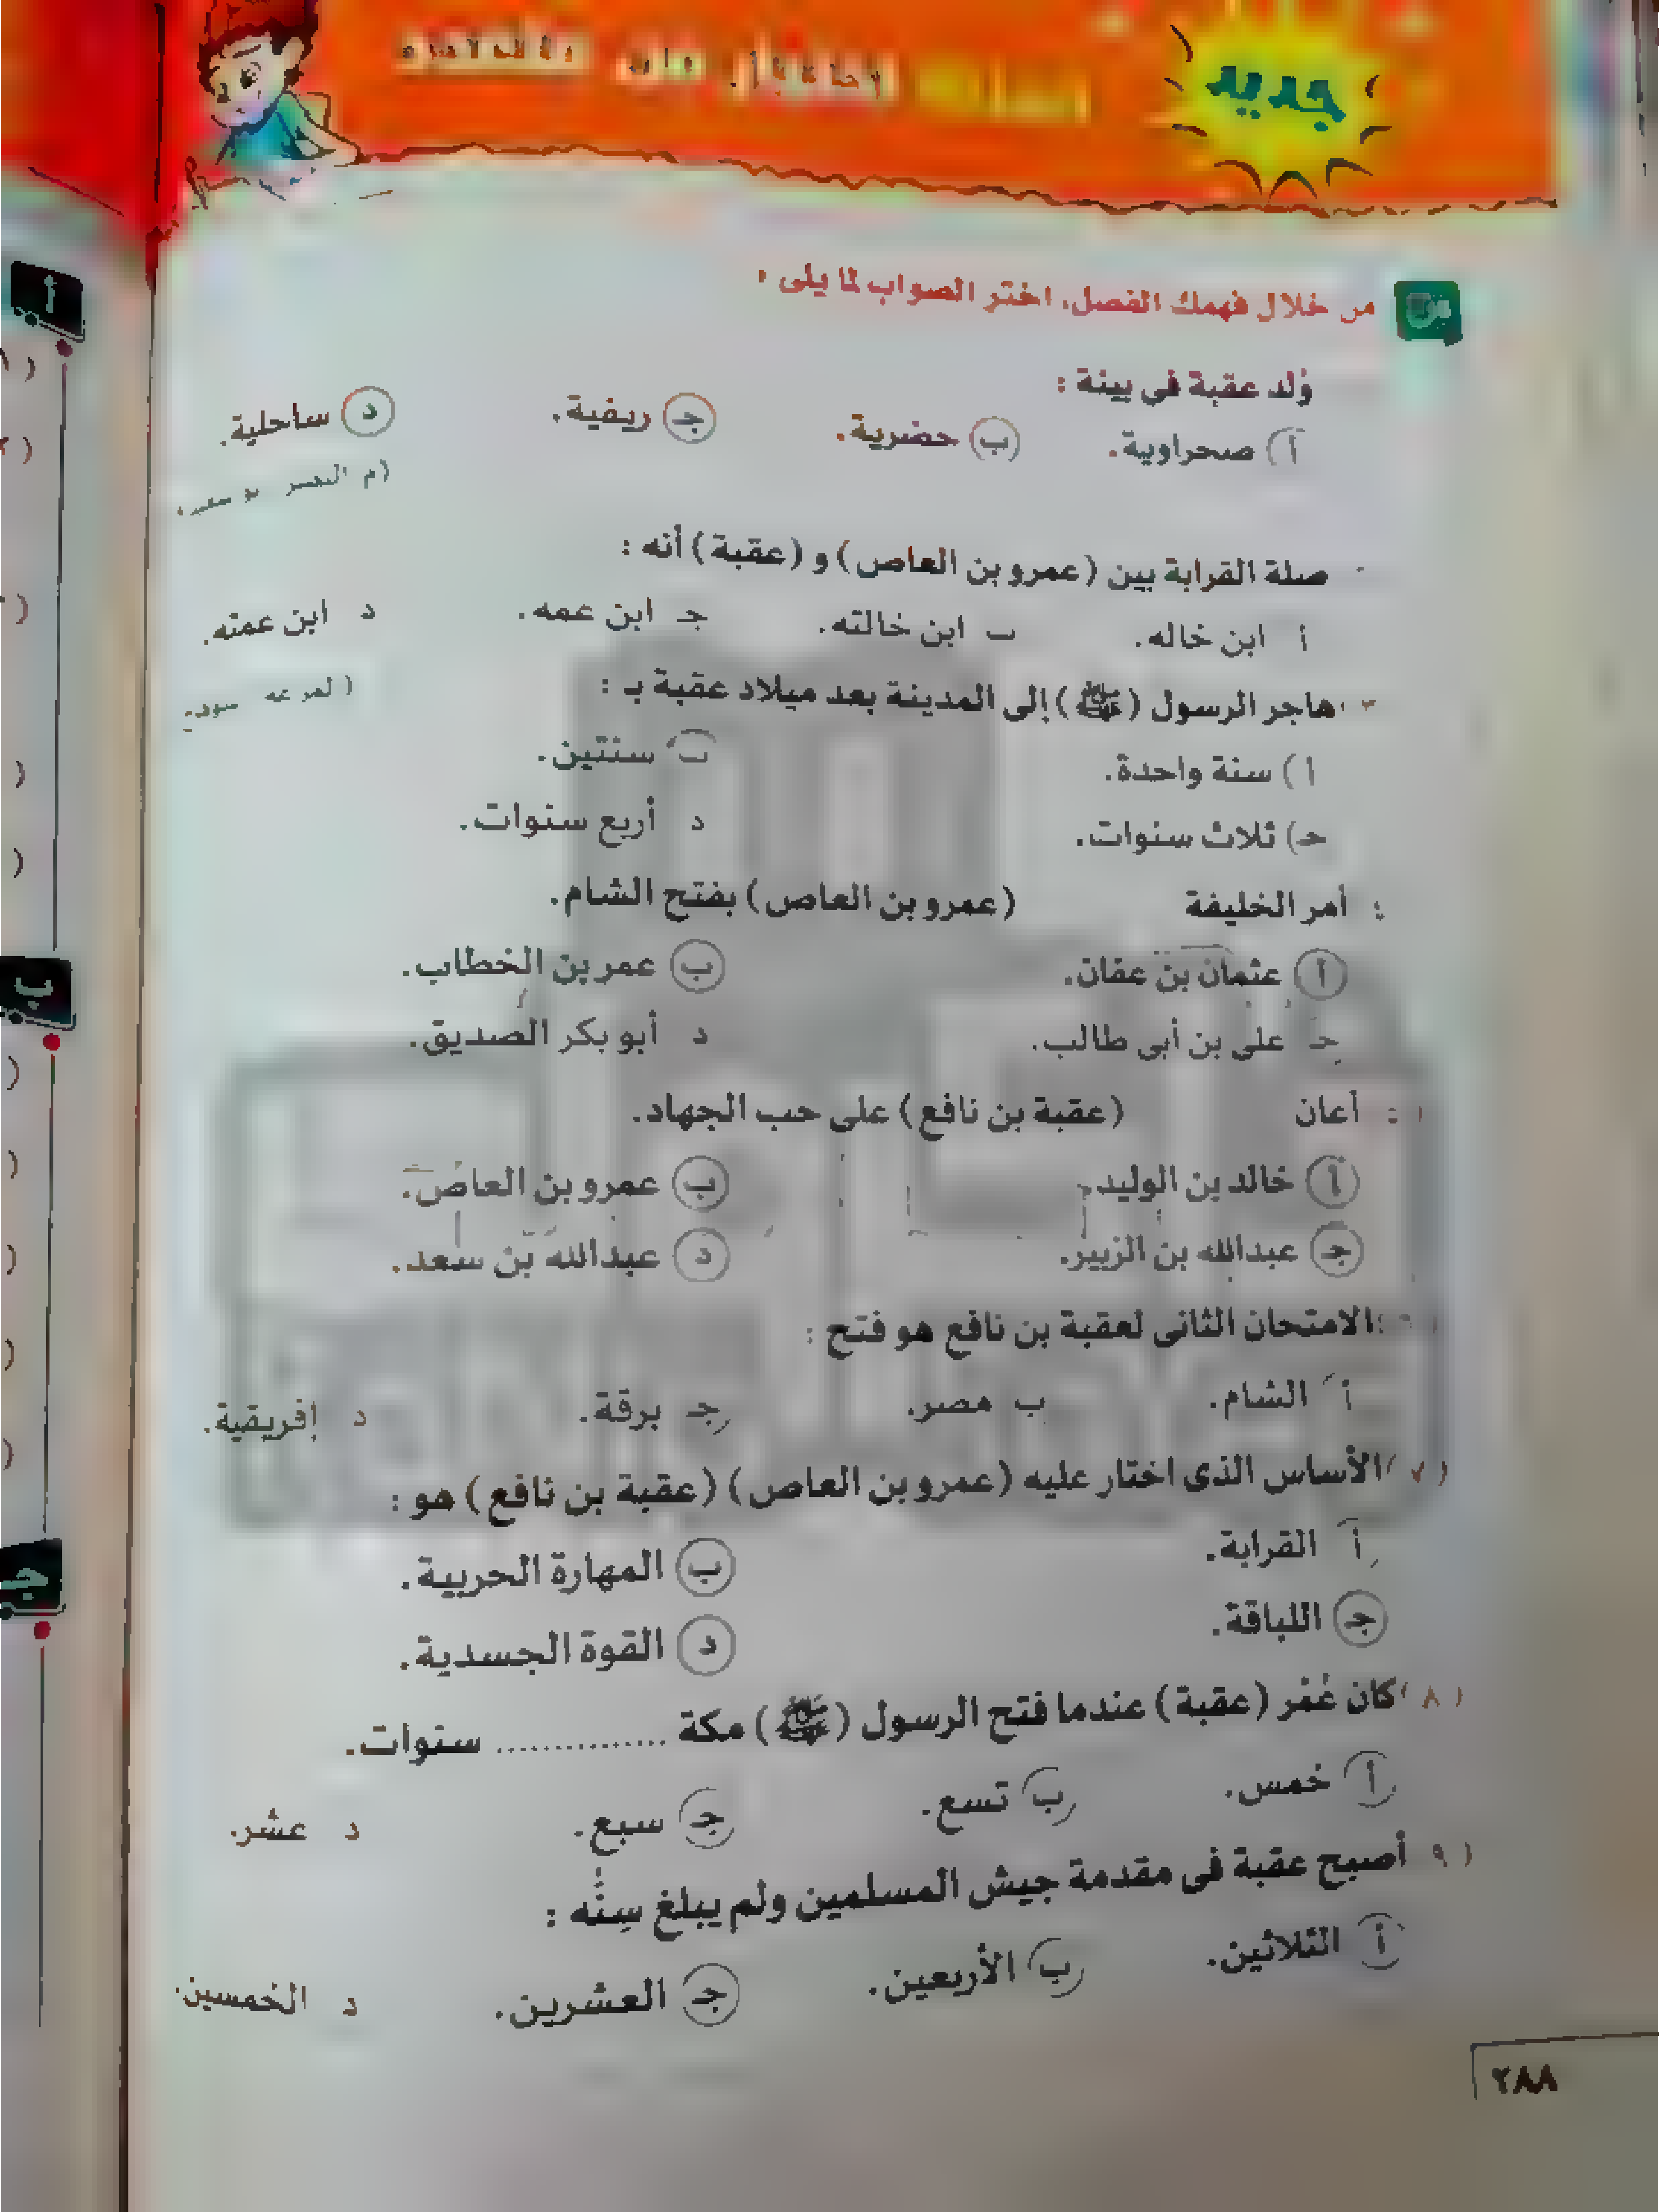 جديد
س من خلال فهمك الفصل، اختر الصواب لما يلى :
وُلد عقبة فى بيئة :
أ صحراوية. ب حضرية. جـ ريفية. د ساحلية.
صلة القرابة بين (عمرو بن العاص) و (عقبة) أنه :
أ ابن خاله. ب ابن خالته. جـ ابن عمه. د ابن عمته.
هاجر الرسول (ﷺ) إلى المدينة بعد ميلاد عقبة بـ :
أ سنة واحدة. ب سنتين.
جـ ثلاث سنوات. د أربع سنوات.
أمر الخليفة (عمرو بن العاص) بفتح الشام.
أ عثمان بن عفان. ب عمر بن الخطاب.
جـ على بن أبى طالب. د أبو بكر الصديق.
أعان (عقبة بن نافع) على حب الجهاد.
أ خالد بن الوليد. ب عمرو بن العاص.
جـ عبدالله بن الزبير. د عبدالله بن سعد.
الامتحان الثانى لعقبة بن نافع هو فتح :
أ الشام. ب مصر. جـ برقة. د إفريقية.
(٧) الأساس الذى اختار عليه (عمرو بن العاص) (عقبة بن نافع) هو :
أ القرابة. ب المهارة الحربية.
جـ اللباقة. د القوة الجسدية.
(٨) كان عُمْر (عقبة) عندما فتح الرسول (ﷺ) مكة .............. سنوات.
أ خمس. ب تسع. جـ سبع. د عشر.
(٩) أصبح عقبة فى مقدمة جيش المسلمين ولم يبلغ سِنُّه :
أ الثلاثين. ب الأربعين. جـ العشرين. د الخمسين.
٢٨٨
أ
ب
جـ